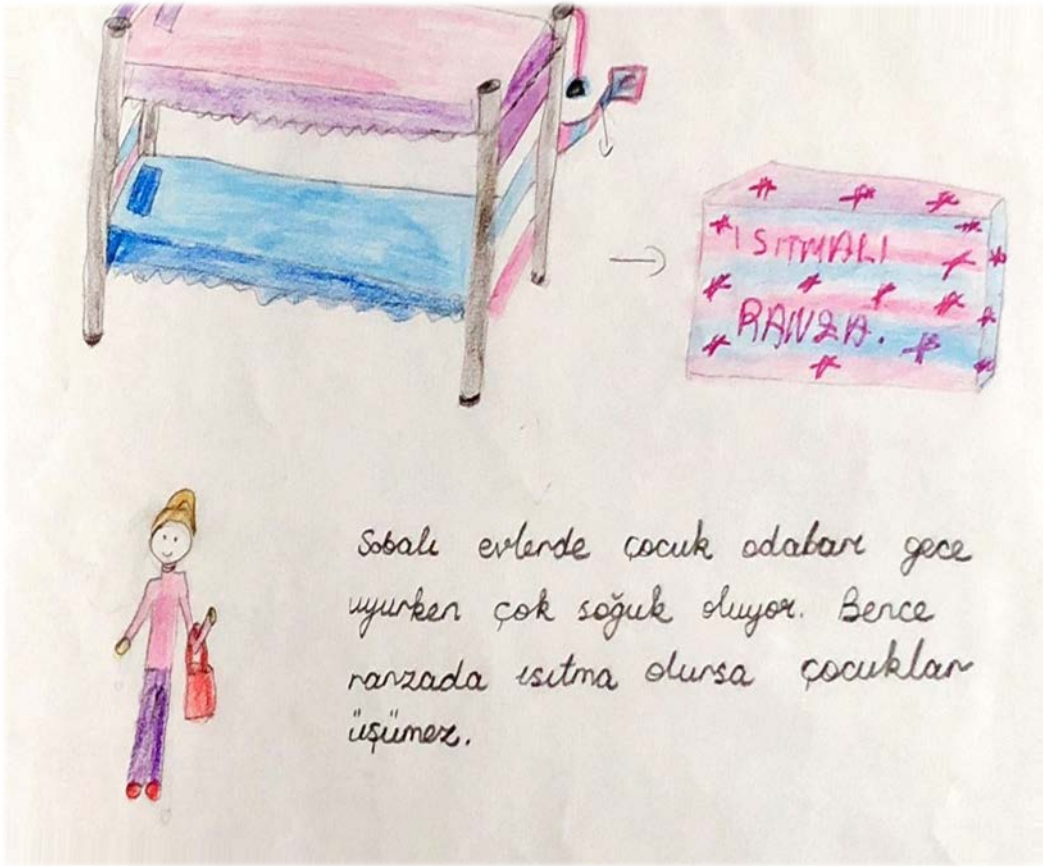 ISITMALI
RANZA.
Sobalı evlerde çocuk odaları gece
uyurken çok soğuk oluyor. Bence
ranzada ısıtma olursa çocuklar
üşümez.